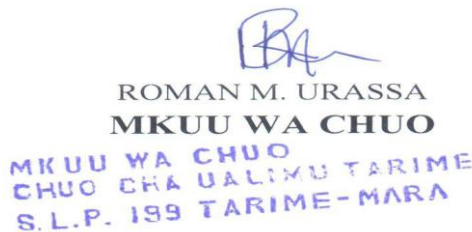 ROMAN M. URASSA
MKUU WA CHUO
MKUU WA CHUO
CHUO CHA UALIMU TARIME
S.L.P. 199 TARIME-MARA